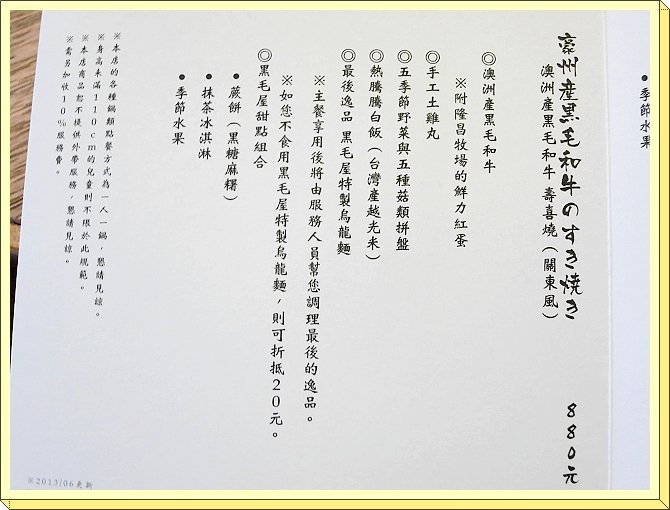 季節水果
豪州産黒毛和牛のすき焼き 880元
澳洲產黑毛和牛 壽喜燒(關東風)
◎澳洲產黑毛和牛
※附隆昌牧場的鮮力紅蛋
◎手工土雞丸
◎五季節野菜與五種菇類拼盤
◎熱騰騰白飯(台灣產越光米)
◎最後逸品 黑毛屋特製烏龍麵
※主餐享用後將由服務人員幫您調理最後的逸品。
※如您不食用黑毛屋特製烏龍麵,則可折抵20元。
◎黑毛屋甜點組合
●蕨餅(黑糖麻糬)
●抹茶冰淇淋
●季節水果
※本店的各種鍋類點餐方式為一人一鍋,懇請見諒。
※身高未滿110cm的兒童則不限於此規範。
※本店商品恕不提供外帶服務,懇請見諒。
※需另加收10%服務費。
※2013/06更新